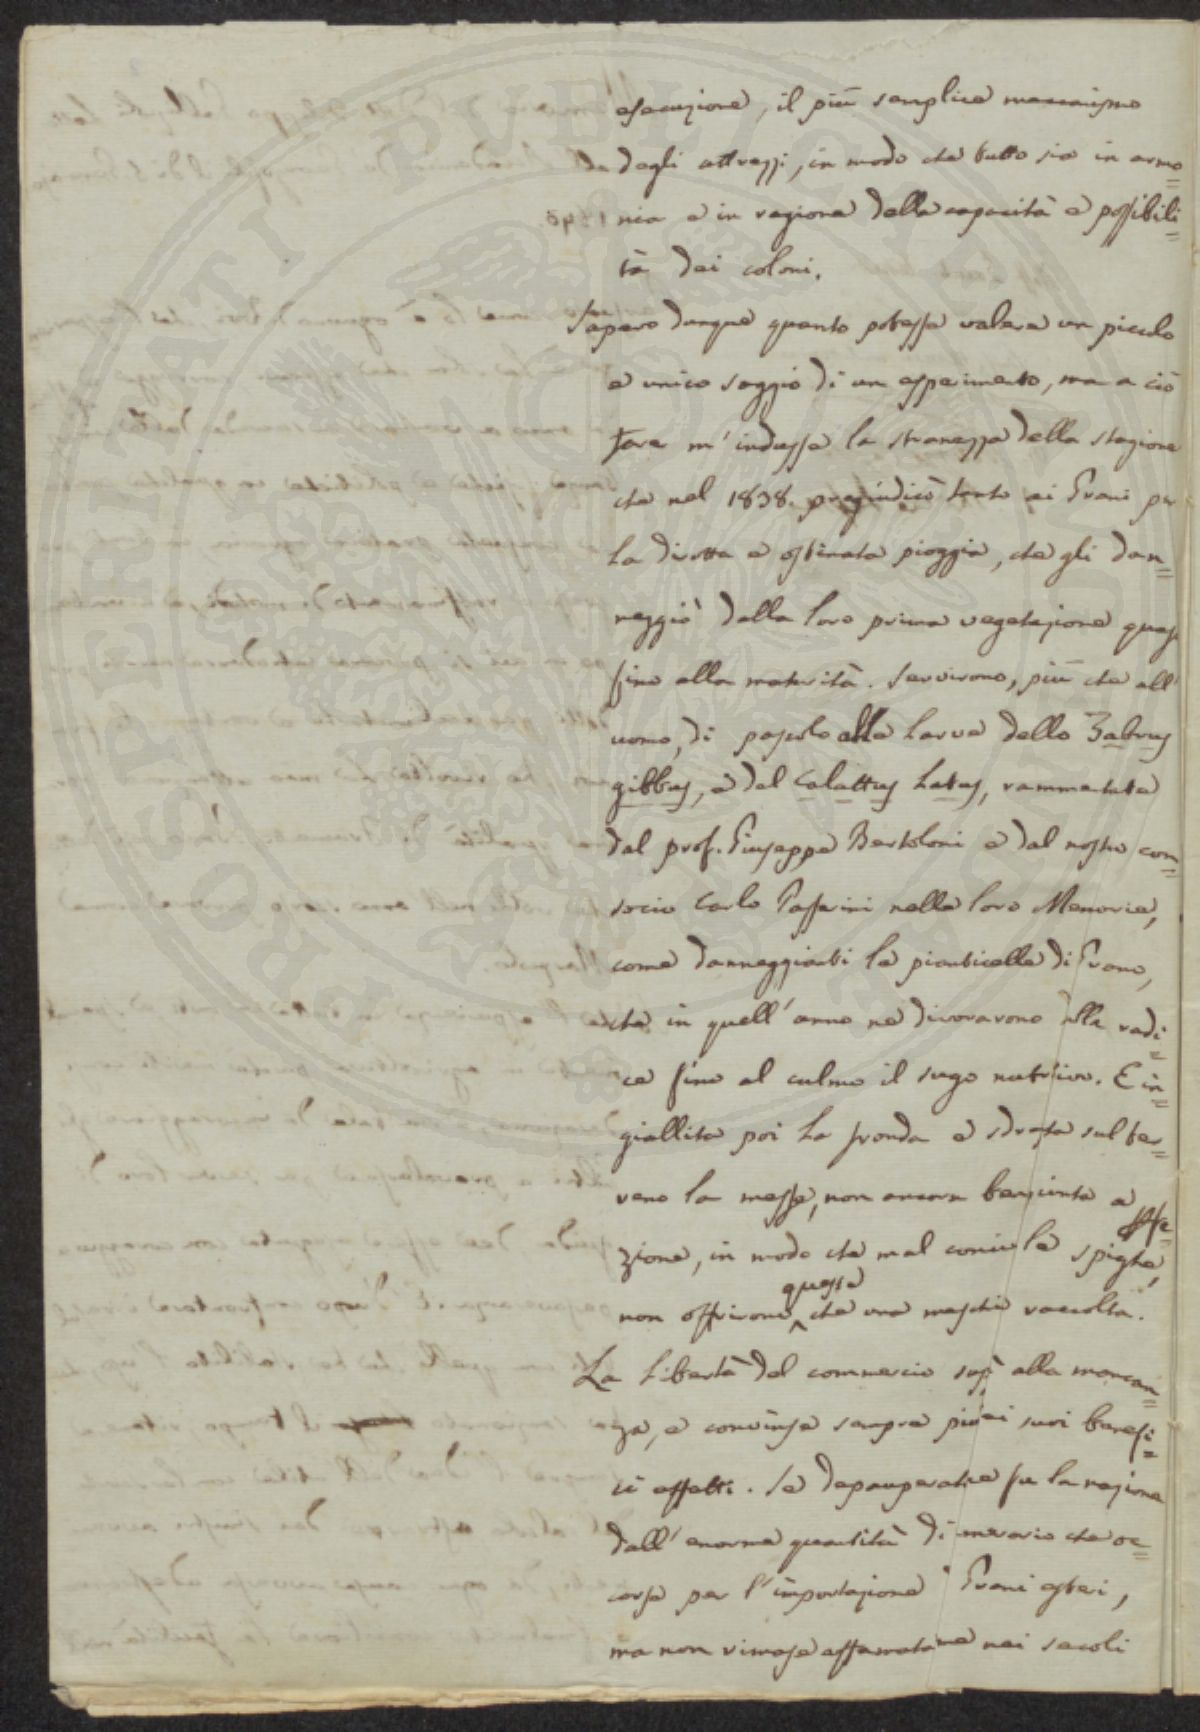 esecuzione, il più semplice meccanismo
degli attrezzi, in modo che tutto sia in armo=
nia e in ragione della capacità e possibili=
tà dei coloni.
Sapevo dunque quanto potesse valere un piccolo
e unico saggio di un esperimento, ma a ciò
fare m'indusse la stranezza della stagione
che nel 1838. pregiudicò tanto ai Grani per
la dirotta e ostinata pioggia, che gli dan=
neggiò dalla loro prima vegetazione quasi
fino alla maturità. Servirono, più che all'
uomo, di pascolo alla Larva dello Zabrus
gibbus, e del Calattus Latus, rammentate
dal prof. Giuseppe Bertoloni e dal nostro con=
socio Carlo Passerini nelle loro Memorie,
come danneggianti le pianticelle di Grano,
che in quell'anno ne divorarono dalla radi=
ce fino al culmo il sugo nutritivo. E in=
giallita poi la fronda e sdrata sul ter=
reno la messe, non ancora bengiunta a
zione, in modo che mal concie le spighe,
non offrirono queste che una meschi raccolta.
La Libertà del commercio sopì alla mancan=
za, e convinse sempre più ei suoi benefi=
ci effetti. Se depauperata fu la nazione
dall'enorme quantità di merario che oc=
corse per l'importazione Grani esteri,
ma non rimase affamata ne nei secoli
PROSPERITATI PVBLICAE AVGENDAE